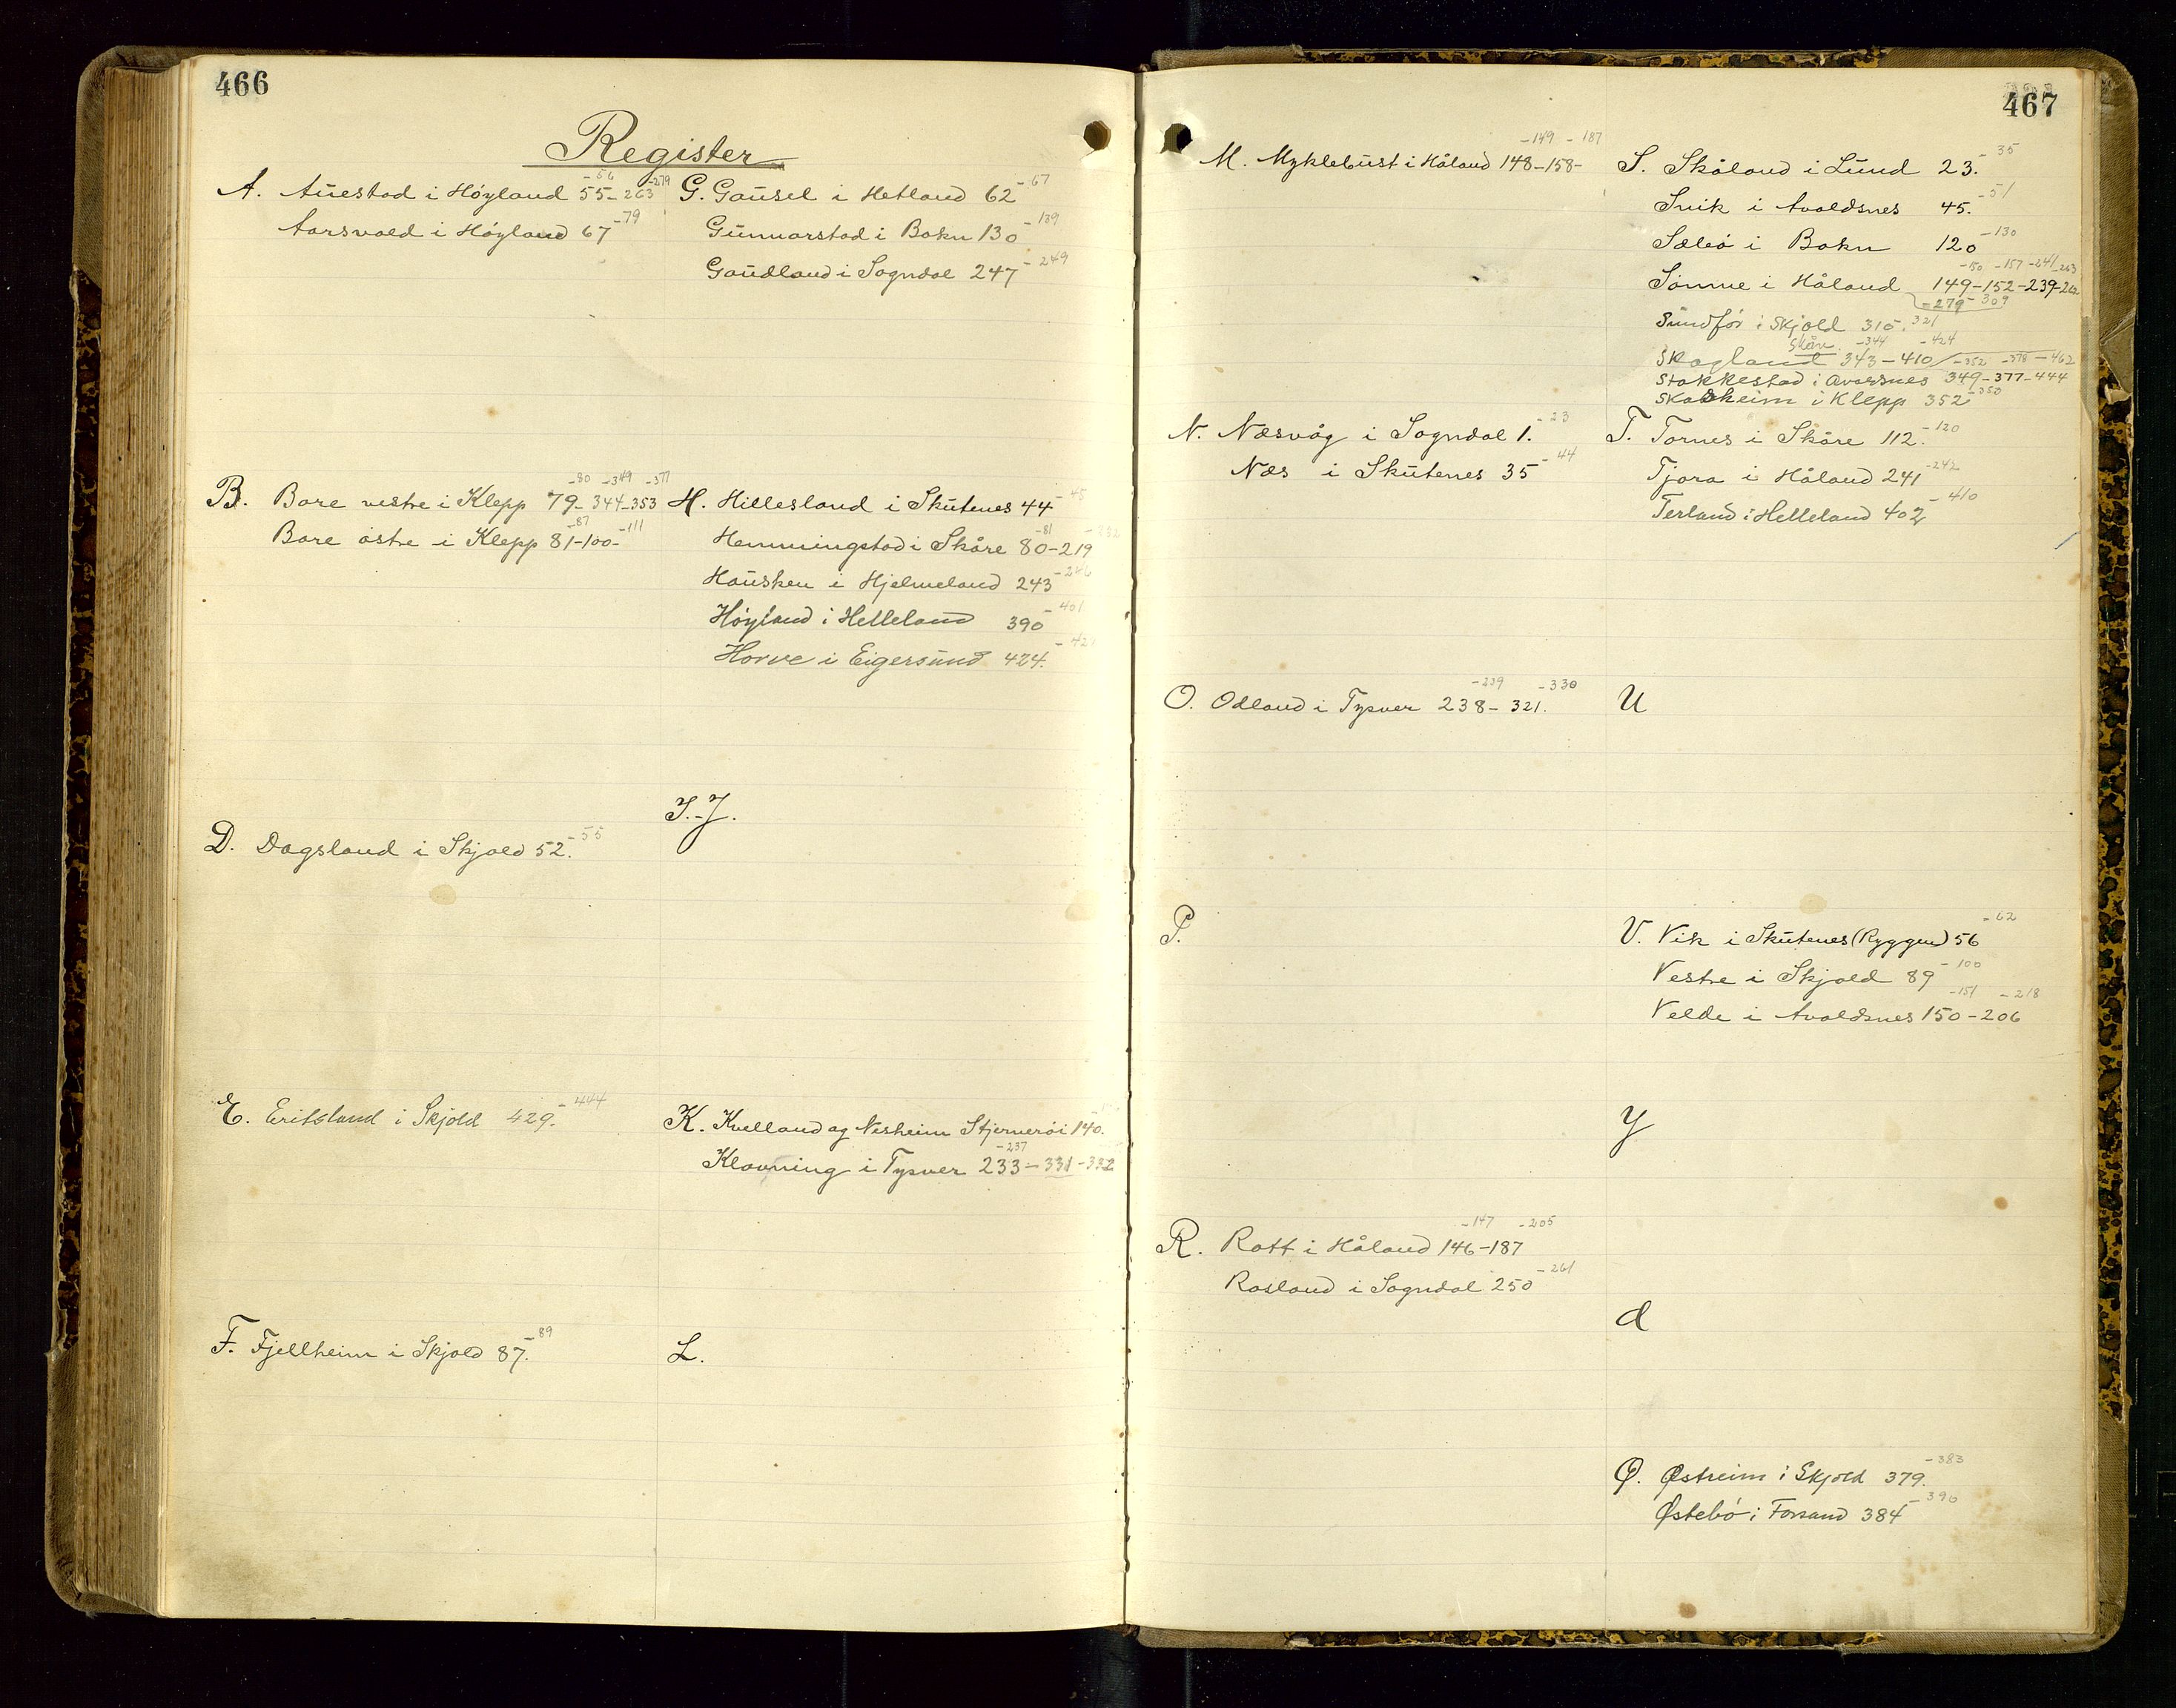 466
Register
A. Auestad i Høyland 55-56 - 263-279
Aarsvold i Høyland 67-79
B. Bore vestre i Klepp 79-80 - 344-349 - 353-377
Bore østre i Klepp 81-87 - 100-111
D. Dagsland i Skjold 52.-55
E. Eriksland i Skjold 429.-444
F. Fjellheim i Skjold 87.-89
G. Gausel i Hetland 62-67
Gunnarstad i Bokn 130-139
Gaudland i Sogndal 247-249
H. Hillesland i Skutenes 44-45
Hemmingstad i Skåre 80-81 - 219-232
Hausken i Hjelmeland 243-246
Høyland i Helleland 390-401
Horve i Eigersund 424.
I.-J.
K. Kvelland og Nesheim Stjernerøi 140.
Klovning i Tysver 233-237 - 331-332
L.
467
M. Myklebust i Håland 148-149 - 158-187
N. Næsvåg i Sogndal 1.-23
Næs i Skutenes 35-44
O. Odland i Tysver 238-239 - 321.-330
P.
R. Rott i Håland 146-147 - 187-205
Rosland i Sogndal 250-261
S. Skåland i Lund 23.-35
Snik i Avaldsnes 45.-51
Sæbø i Bokn 120-130
Sømme i Håland 149-150 - 152-157 - 239-241 - 262-263
-279-309
Sundfør i Skjold 315.-321
Skogland Skåre 343-344 - 410-424
Stokkestad i Avaldsnes 349-352 - 377-378 - 444-462
Skadsheim i Klepp 352-353
T. Tornes i Skåre 112.-120
Tjora i Håland 241-242
Terland i Helleland 402-410
U
V. Vik i Skutenes (Ryggen) 56-62
Vestre i Skjold 89-100
Velde i Avaldsnes 150-151 - 206-218
Y
Ø. Østreim i Skjold 379.-383
Østebø i Forsand 384-390